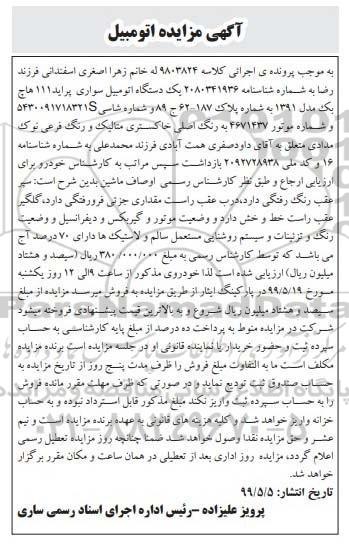 آگهی مزایده اتومبیل
به موجب پرونده ی اجرائی کلاسه ۹۸۰۳۸۲۴ له خانم زهرا اصغری اسفندانی فرزند
رضا به شماره شناسنامه ۲۰۸۰۳۴۱۹۳۶ یک دستگاه اتومبیل سواری پراید۱۱۱ هاچ
بک مدل ۱۳۹۱ به شماره پلاک ۱۸۷-۶۲ ج ۸۹ و شماره شاسی S۵۴۳۰۰۹۱۷۱۸۳۲۱
و شماره موتور ۴۶۷۱۴۳۷ به رنگ اصلی خاکستری متالیک و رنگ فرعی نوک
مدادی متعلق به آقای داودصفری همت آبادی فرزند محمدعلی به شماره شناسنامه
۱۶ و کد ملی ۲۰۹۲۷۲۸۹۳۸ بازداشت سپس مراتب به کارشناس خودرو برای
ارزیابی ارجاع و طبق نظر کارشناس رسمی اوصاف ماشین بدین شرح است: سپر
عقب رنگ رفتگی دارد،درب عقب راست مقداری جزئی فرورفتگی دارد،گلگیر
عقب راست خط و خش دارد و وضعیت موتور و گیربکس و دیفرانسیل و وضعیت
رنگ و تزئینات و سیستم روشنایی مستعمل سالم و لاستیک ها دارای ۷۰ درصد آج
می باشد که توسط کارشناس رسمی به مبلغ ۳۸۰/۰۰۰/۰۰۰ ریال (سیصد و هشتاد
میلیون ریال) ارزیابی شده است لذا خودروی مذکور از ساعت ۹الی ۱۲ روز یکشنبه
مورخ ۹۹/۵/۱۹ در پارکینگ ایثار از طریق مزایده به فروش میرسد مزایده از مبلغ
سیصد و هشتاد میلیون ریال شروع و به بالاترین قیمت پیشنهادی فروخته میشود
شرکت در مزایده منوط به پرداخت ده درصد از مبلغ پایه کارشناسی به حساب
سپرده ثبت و حضور خریدار یا نماینده قانونی او در جلسه مزایده است برنده مزایده
مکلف است ما به التفاوت مبلغ فروش را ظرف مدت پنج روز از تاریخ مزایده به
حساب صندوق ثبت تودیع نماید و در صورتی که ظرف مهلت مقرر مانده فروش
را به حساب سپرده ثبت واریز نکند مبلغ مذکور قابل استرداد نبوده و به حساب
خزانه واریز خواهد شد و کلیه هزینه های قانونی به عهده برنده مزایده است و نیم
عشر و حق مزایده نقدا وصول خواهد شد ضمنا چنانچه روز مزایده تعطیل رسمی
اعلام گردد، مزایده روز اداری بعد از تعطیلی در همان ساعت و مکان مقرر برگزار
خواهد شد.
تاریخ انتشار: ۹۹/۵/۵
پرویز علیزاده –رئیس اداره اجرای اسناد رسمی ساری